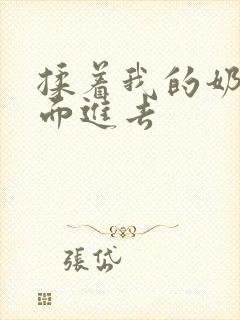 揉着我的奶
而進去
張岱